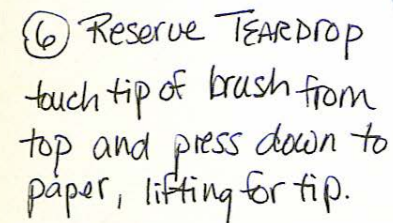 ⑥ Reserve TEARDROP
touch tip of brush from
top and press down to
paper, lifting for tip.